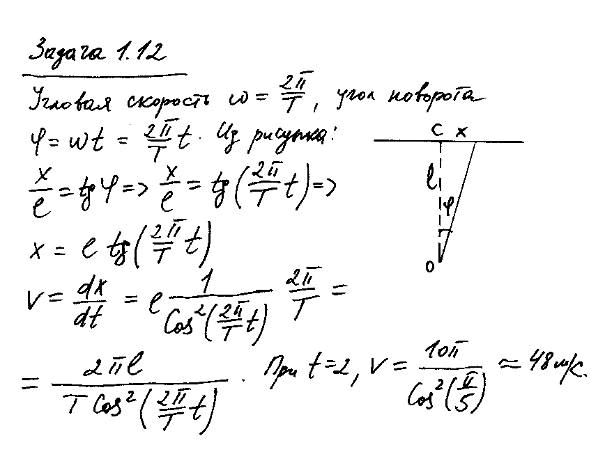 Задача 1.12
Угловая скорость ω = 2π/T, угол поворота
φ = ωt = 2π/T t. Из рисунка:
x/ℓ = tg φ => x/ℓ = tg(2π/T t) =>
x = ℓ tg(2π/T t)
v = dx/dt = ℓ 1/cos²(2π/T t) 2π/T =
= 2πℓ/(T cos²(2π/T t)). При t=2, v = 10π/cos²(π/5) ≈ 48 м/с.
C x
ℓ
φ
O